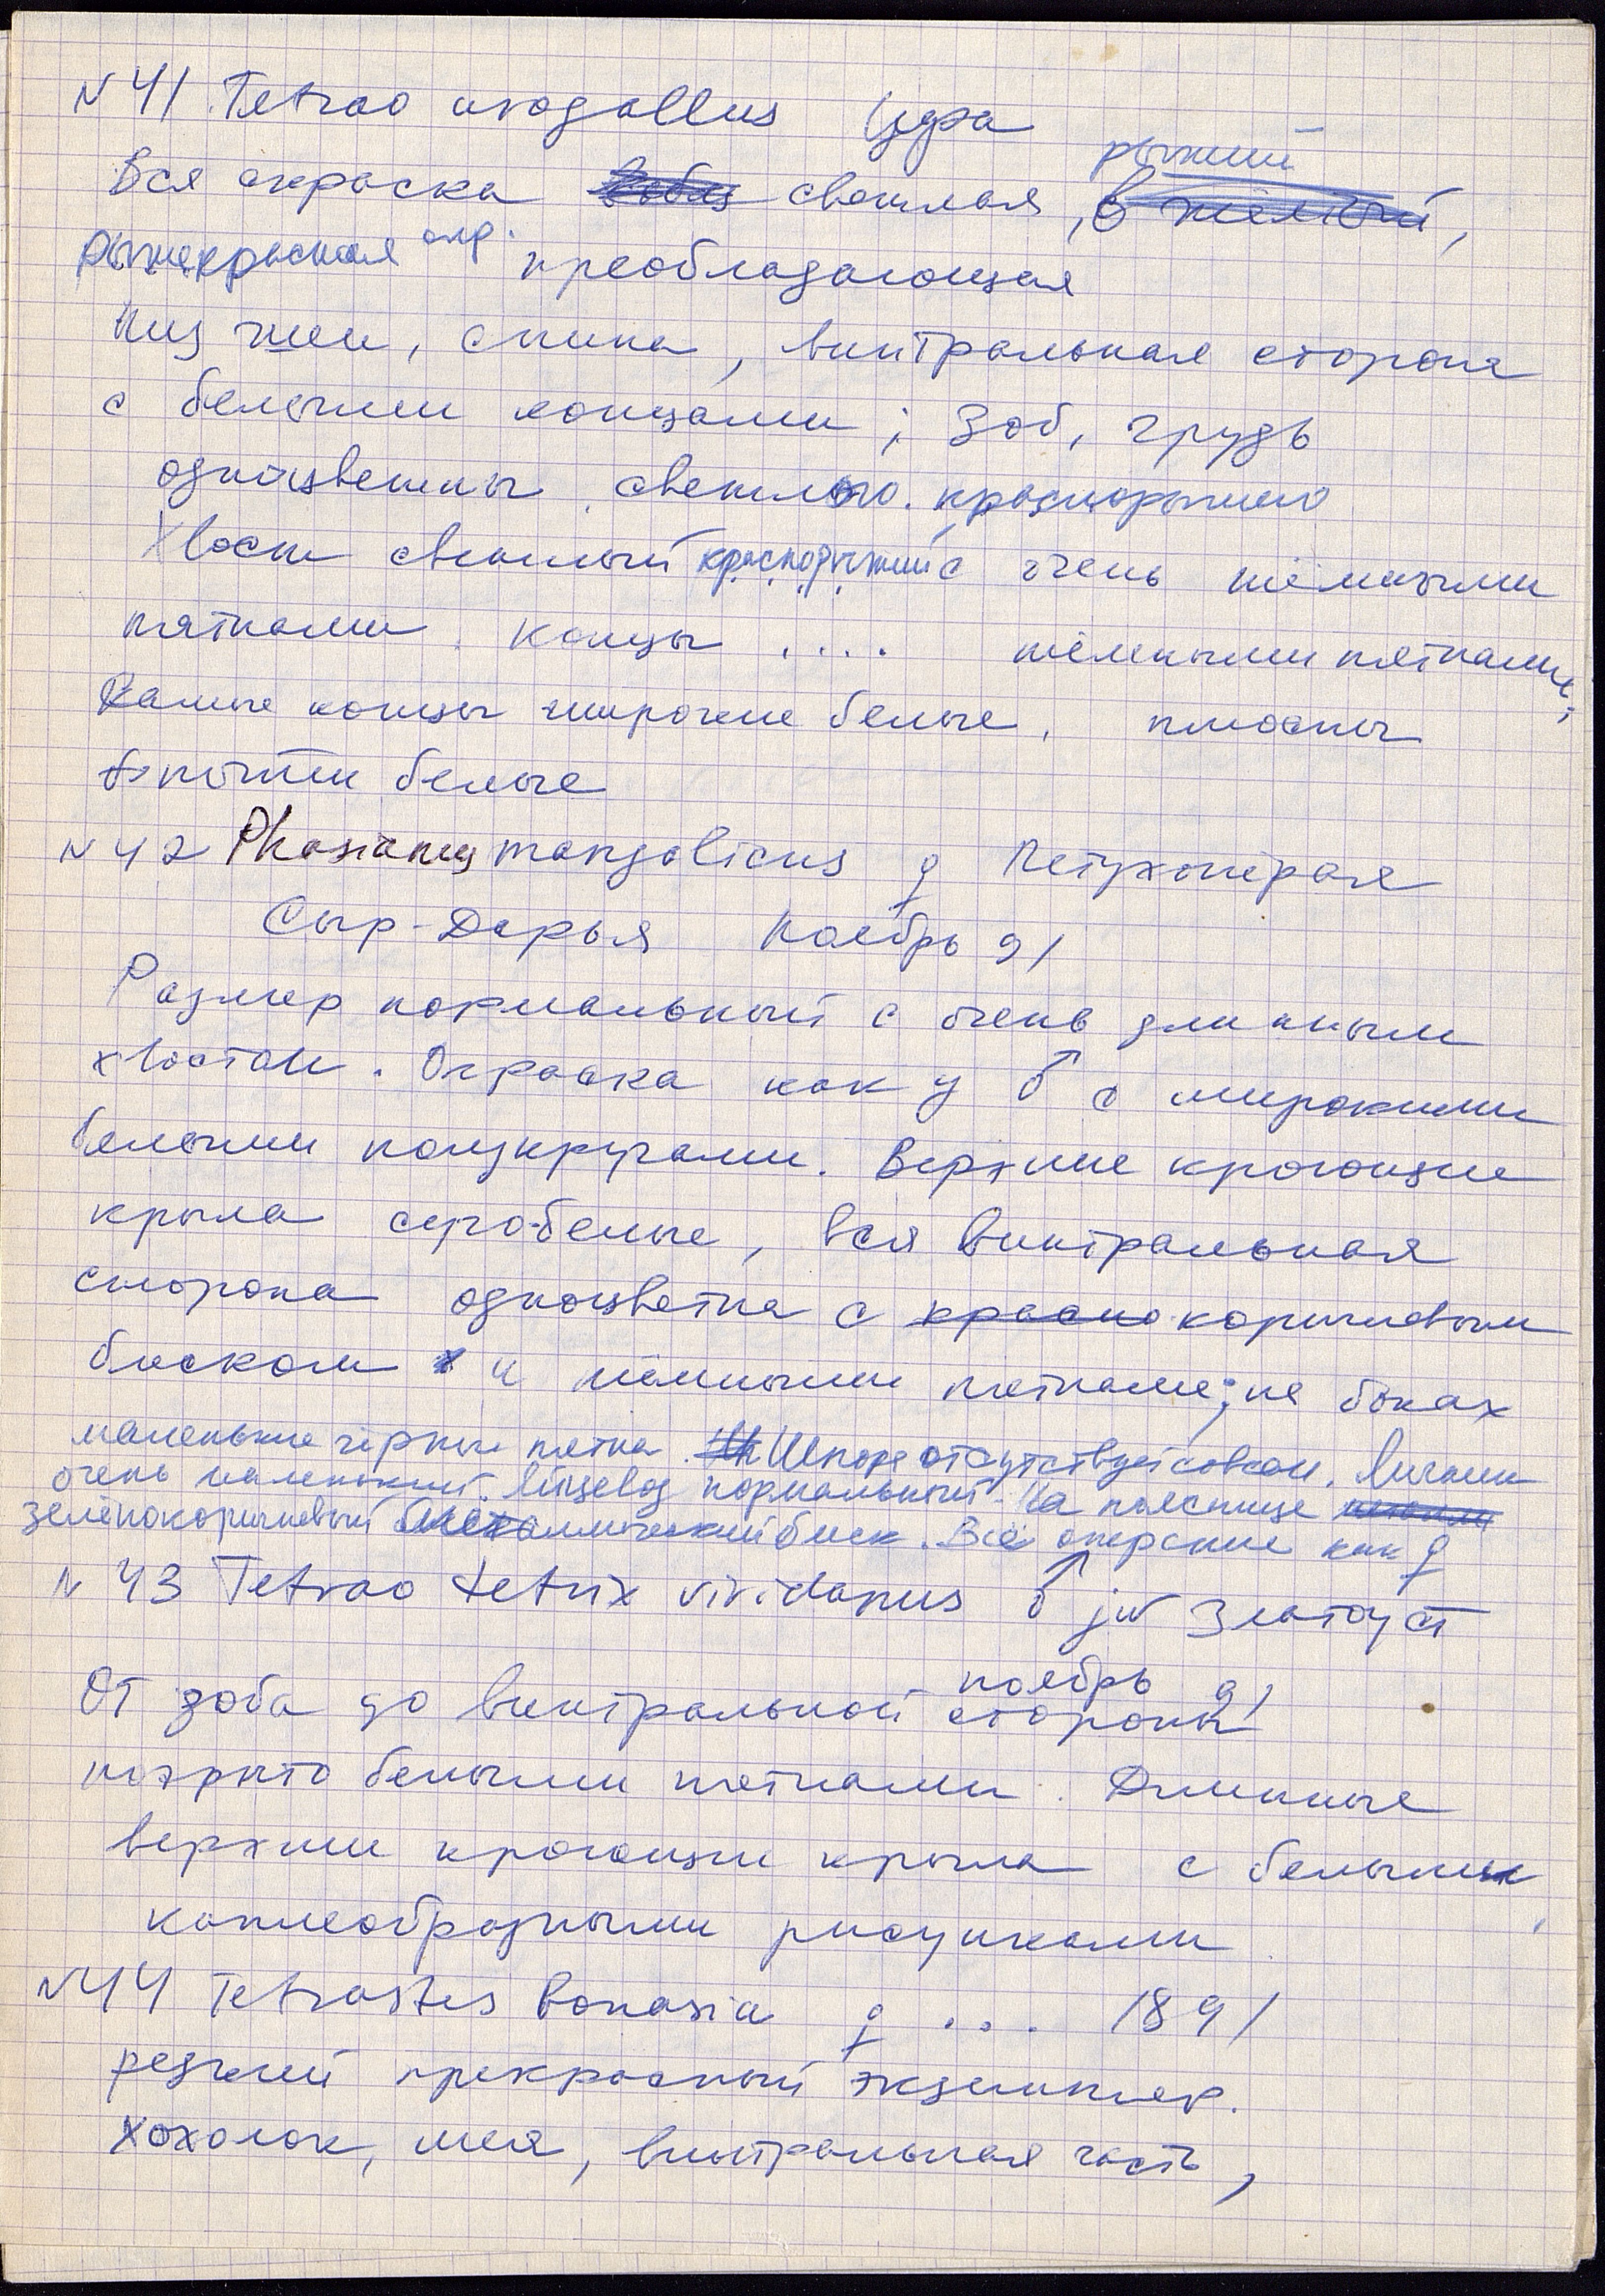 N 41 Tetrao urogallus Уфа
рыжий
Вся окраска светлая, в жёлтый,
рыжекрасная окр. преобладающая
Низ шеи, спина, винтральная сторона
с белыми концами; Зоб, грудь
одноцветны светлого краснорыжего
Хвост светлый краснорыжий с очень тёмными
пятнами. Концы .... тёмными пятнами;
Самые концы широкие белые, плюсны
почти белые
N 42 Phasianus mongolicus ♀ Петухопёрая
Сыр-Дарья Ноябрь 91
Размер нормальный с очень длинным
хвостом. Окраска как у ♂ с широкими
белыми полукругами. Верхние кроющие
крыла серо-белые, вся винтральная
сторона одноцветна с красно коричневым
блеском и тёмными пятнами; на боках
маленькие чёрные пятна. Шпора отсутствует совсем. Яичник
очень маленький. Яйцевод нормальный. На пояснице
зелёнокоричневый металлический блеск. Всё оперение как ♀
N 43 Tetrao tetrix viridanus ♂ juv Златоуст
ноябрь 91
От зоба до винтральной стороны
покрыто белыми пятнами. Длинные
верхние кроющие крыла с белыми
каплеобразными рисунками
N 44 Tetrastes bonasia ♀ ... 1891
редкий прекрасный экземпляр.
Хохолок, шея, винтральная часть,